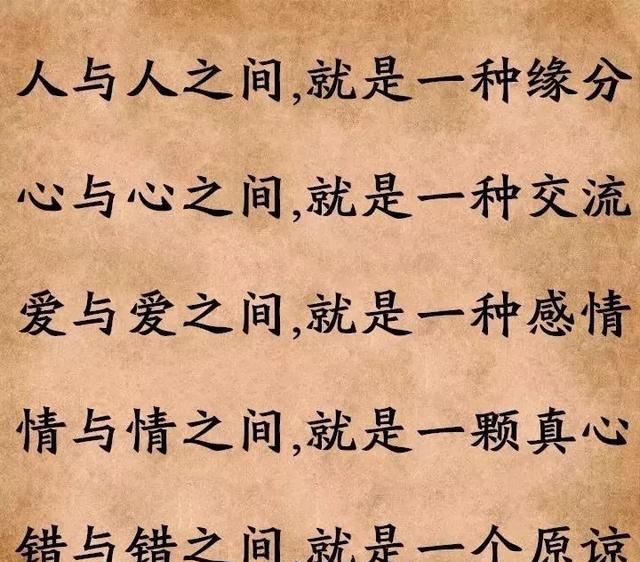 人与人之间,就是一种缘分
心与心之间,就是一种交流
爱与爱之间,就是一种感情
情与情之间,就是一颗真心
错与错之间,就是一个原谅